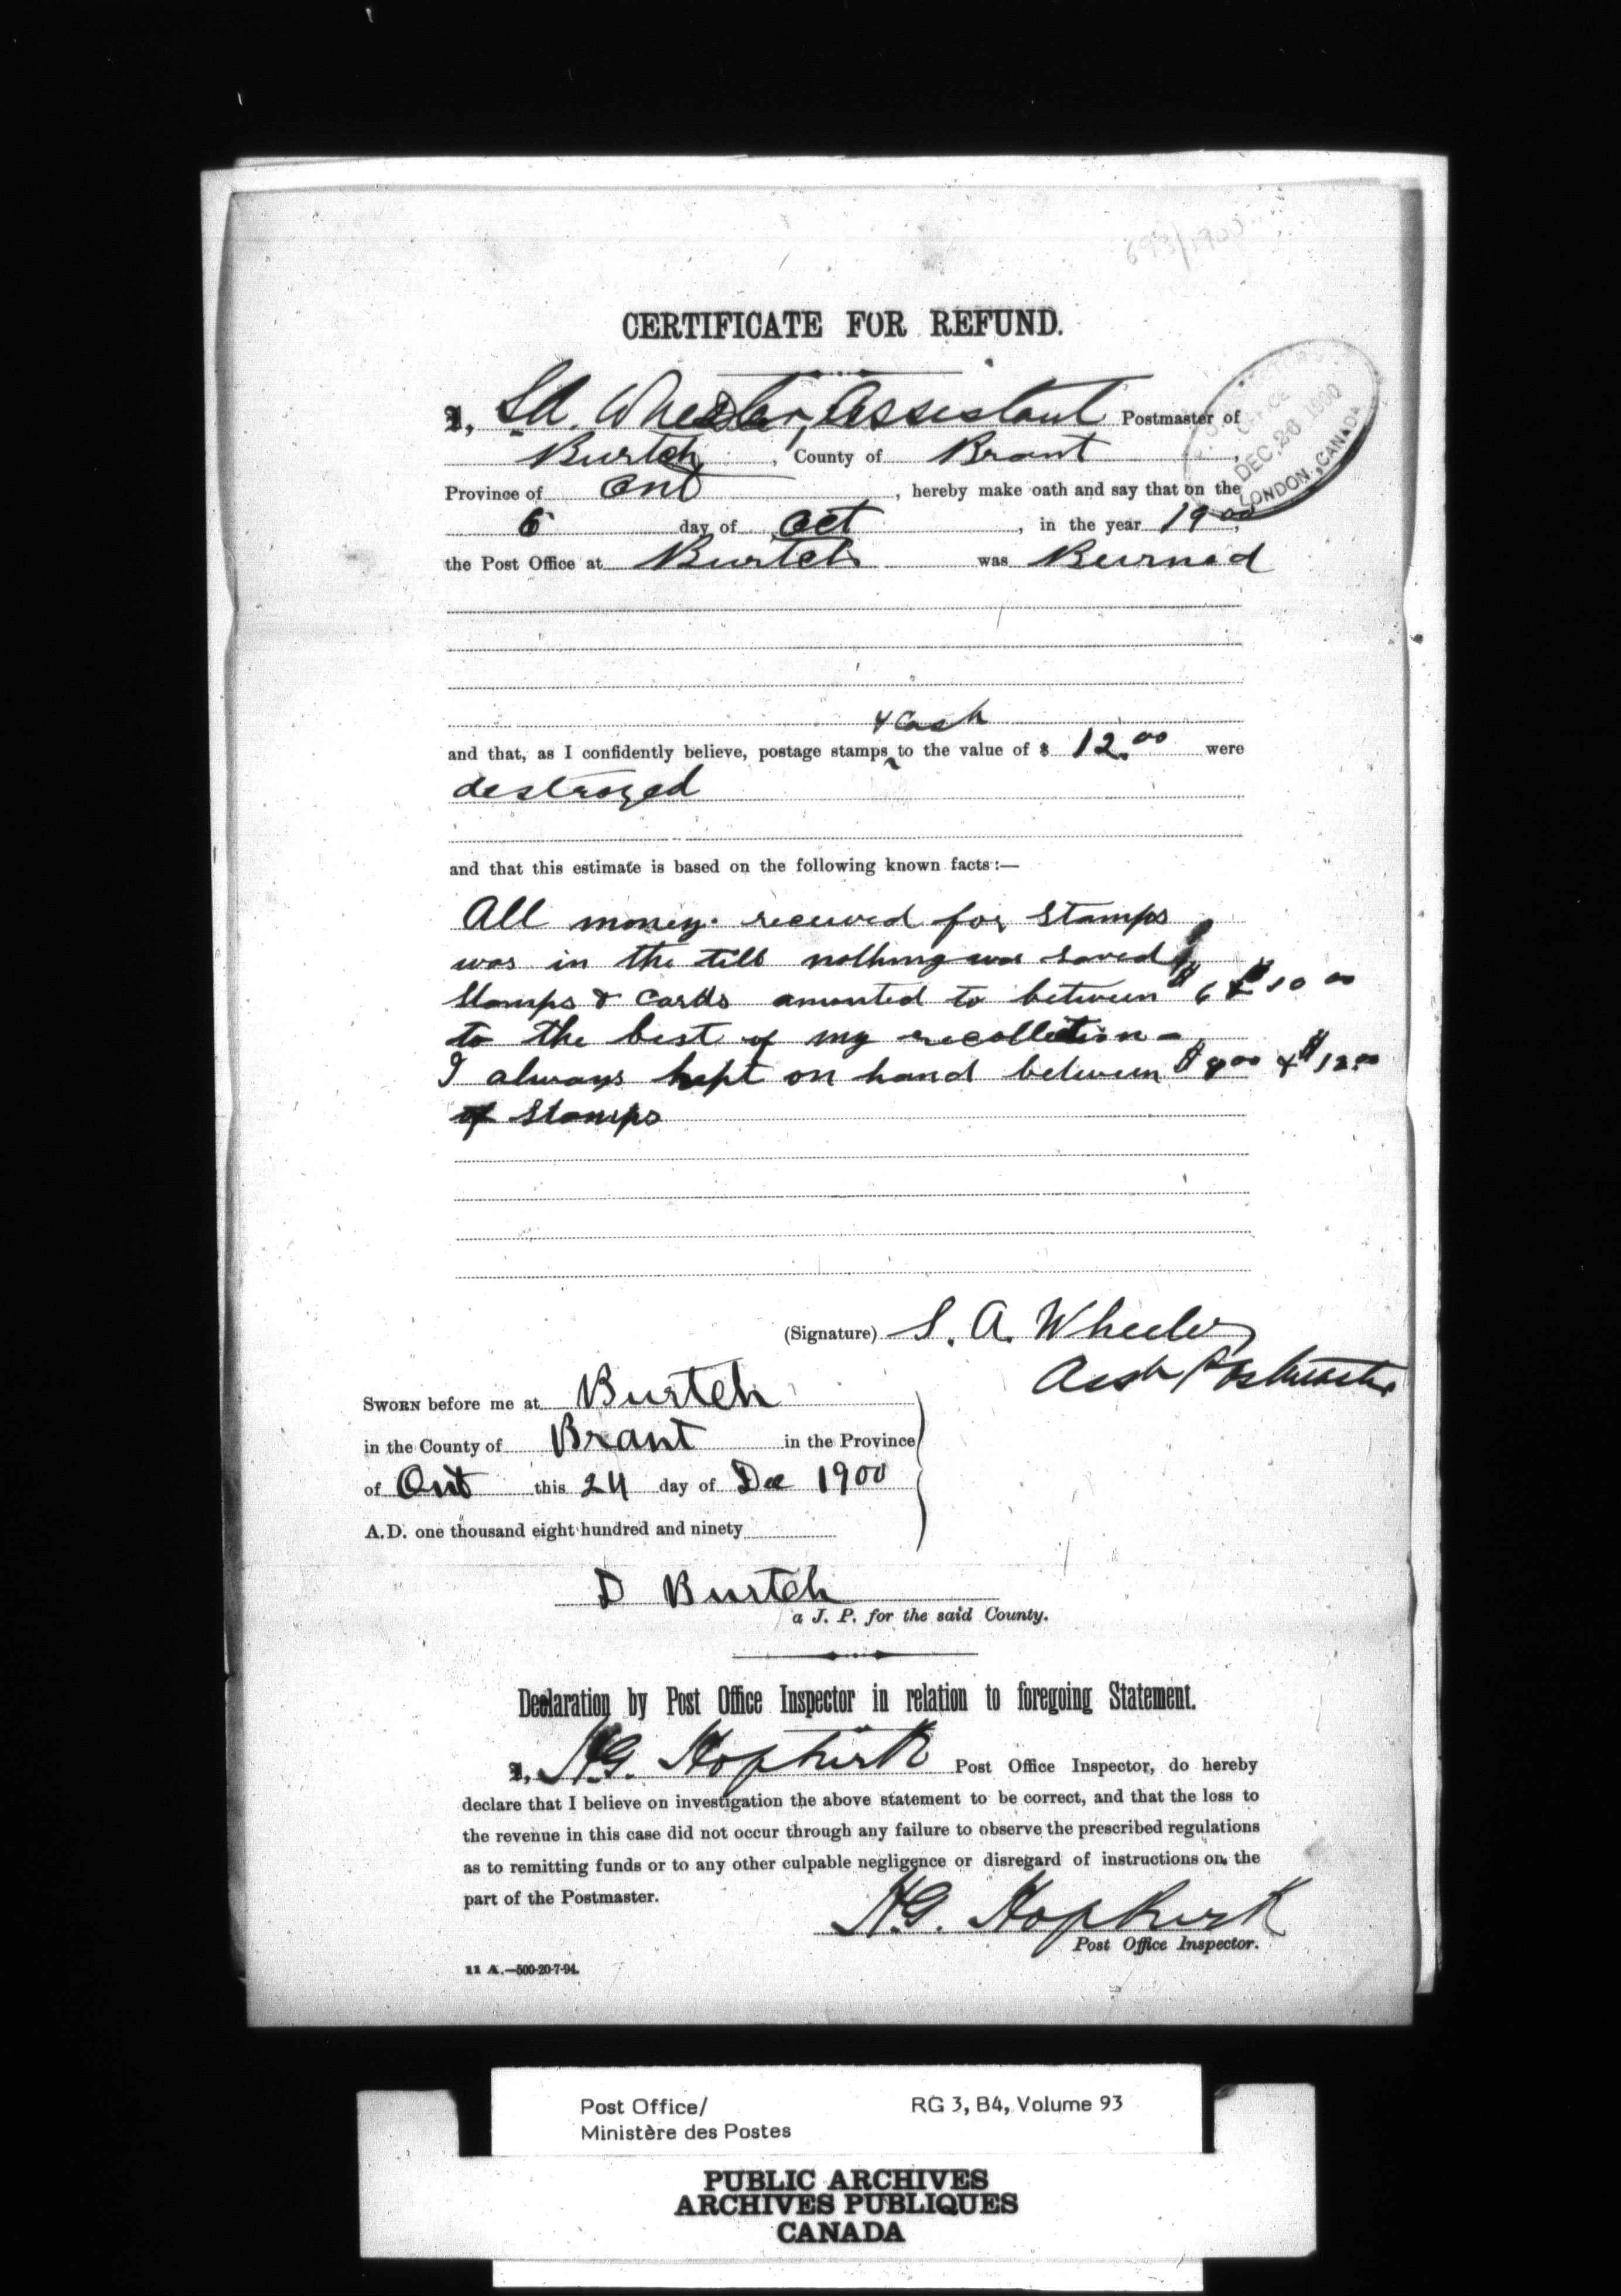 693/1900
CERTIFICATE FOR REFUND.
I, S.A. Wheeler, Assistant Postmaster of
Burtch, County of Brant,
Province of Ont, hereby make oath and say that on the
6 day of Oct, in the year 1900,
the Post Office at Burtch was Burned
P.O. INSPECTOR'S
OFFICE
DEC. 26 1900
LONDON, CANADA
& Cash
and that, as I confidently believe, postage stamps, to the value of $ 12.00 were
destroyed
and that this estimate is based on the following known facts:—
All money received for Stamps
was in the till nothing was saved
Stamps & Cards amounted to between $6 & $10 00
to the best of my recollection -
I always kept on hand between $8 00 & $12 00
of Stamps
(Signature) S. A. Wheeler
Asst Postmaster
SWORN before me at Burtch
in the County of Brant in the Province
of Ont this 24 day of Dec 1900
A.D. one thousand eight hundred and ninety
D Burtch
a J. P. for the said County.
Declaration by Post Office Inspector in relation to foregoing Statement.
I, H.G. Hopkirk Post Office Inspector, do hereby
declare that I believe on investigation the above statement to be correct, and that the loss to
the revenue in this case did not occur through any failure to observe the prescribed regulations
as to remitting funds or to any other culpable negligence or disregard of instructions on the
part of the Postmaster.
H.G. Hopkirk
Post Office Inspector.
11 A.—500-20-7-94.
Post Office/
Ministère des Postes
RG 3, B4, Volume 93
PUBLIC ARCHIVES
ARCHIVES PUBLIQUES
CANADA